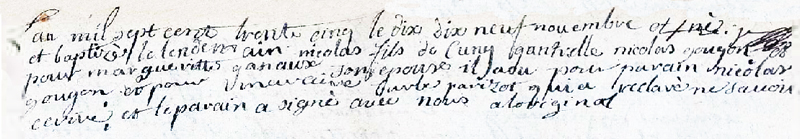 l'an mil sept cent trente cinq le dix dix neuf novembre est née
et baptisé le lendemain nicolas fils de Cuny nicolas gougon
pour margueritte ganaux son epouse il a eu pour parain nicolas
gougon et pour barbe parizot qui a declaré ne savoir
ecrire et le parain a signé avec nous a loriginal